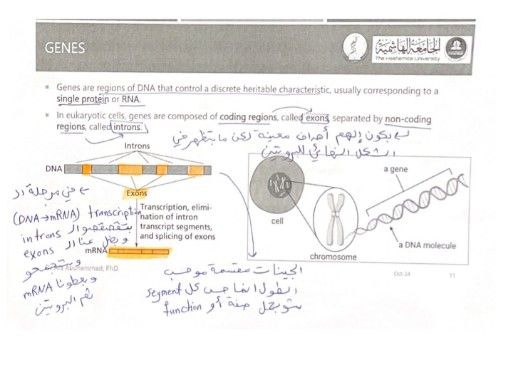 GENES
الجامعة الهاشمية
The Hashemite University
Genes are regions of DNA that control a discrete heritable characteristic, usually corresponding to a
single protein or RNA.
In eukaryotic cells, genes are composed of coding regions, called exons, separated by non-coding
regions, called introns.
يكون إلهم أهداف معينة لكن ما بتظهر في
الشكل النهائي للبروتين
Introns
DNA
Exons
Transcription, elimi-
nation of intron
transcript segments,
and splicing of exons
mRNA
في مرحلة ال
transcription (DNA→mRNA)
introns
exons
mRNA
ثم البروتين
a gene
cell
chromosome
a DNA molecule
الجينات مقسمة حسب
الطول كل segment
صفة أو function
Mohammad, PhD
Oct-24
11